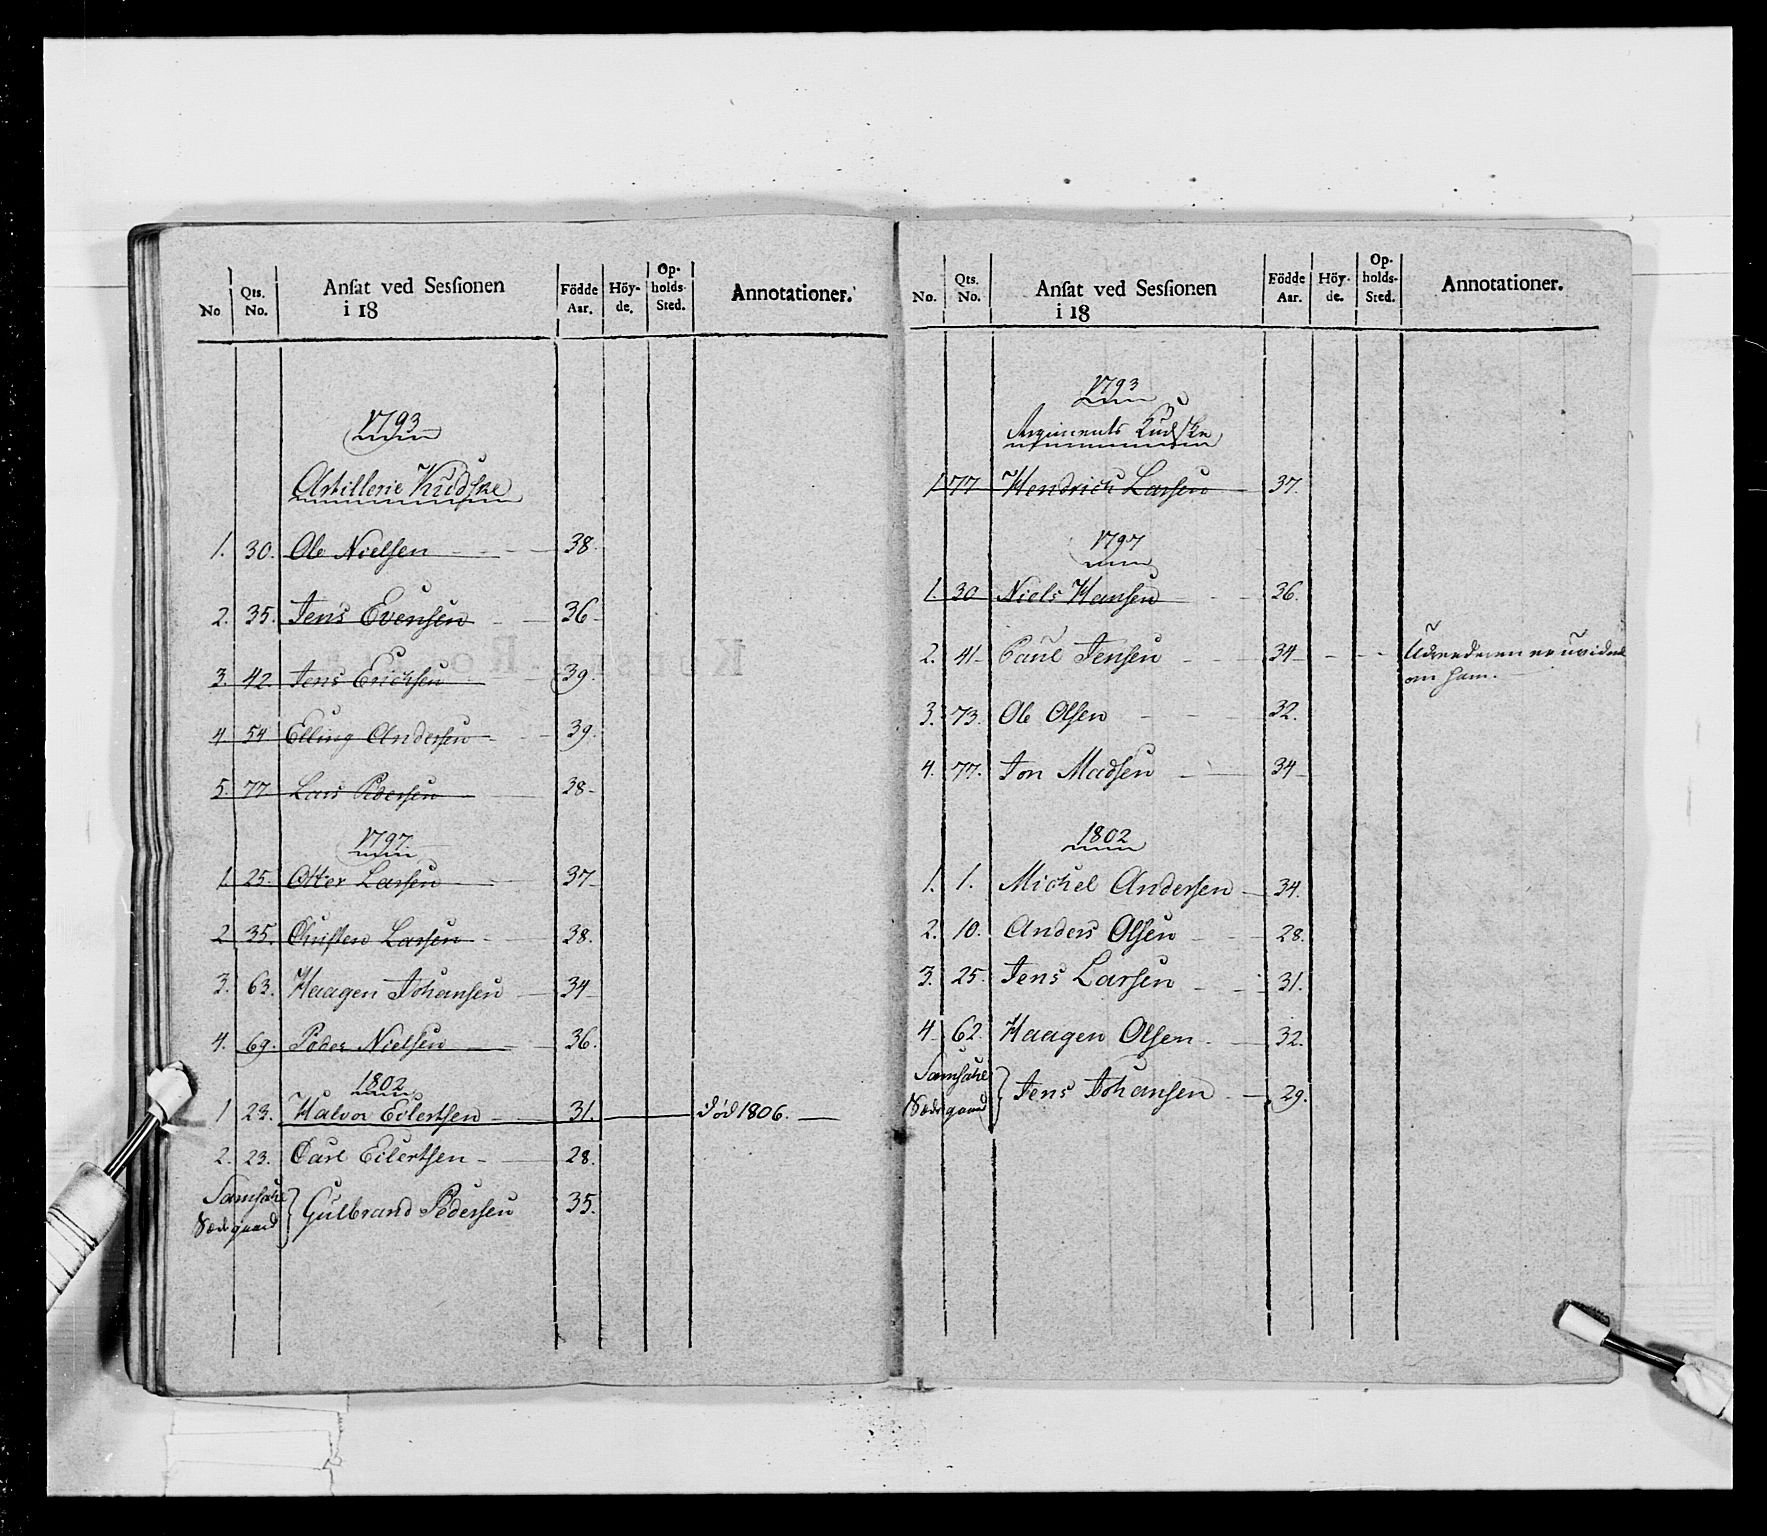 No. Qts. No. Ansat ved Sessionen i 18 Födde Aar. Höy-de. Op-holds-Sted. Annotationer.
1793
Artillerie Kudske
1. 30. Ole Nielsen 38.
2. 35. Jens Evensen 36
3. 42. Jens Erichsen 39.
4. 54 Elling Andersen 39.
5. 77. Lars Pedersen 38
1797.
1. 25. Otter Larsen 37
2. 35. Christen Larsen 38.
3. 63. Haagen Johansen 34
4. 69. Peder Nielsen 36.
1802
1 23. Halvor Eilertsen 31. Död 1806.
2. 23. Carl Eilertsen 28.
Gulbrand Pedersen 35.
No. Qts. No. Ansat ved Sessionen i 18 Födde Aar. Höy-de. Op-holds-Sted. Annotationer.
1793
Regiments Kudske
1 77 Hendrich Larsen 37.
1797
1. 30 Niels Hansen 36.
2. 41 Paul Jensen 34 er uvidende
om ham.
3. 73. Ole Olsen 32.
4. 77. Jon Madsen 34
1802
1. 1. Michel Andersen 34.
2. 10. Anders Olsen 28.
3. 25. Jens Larsen 31.
4 62. Haagen Olsen 32.
Jens Johansen 29.